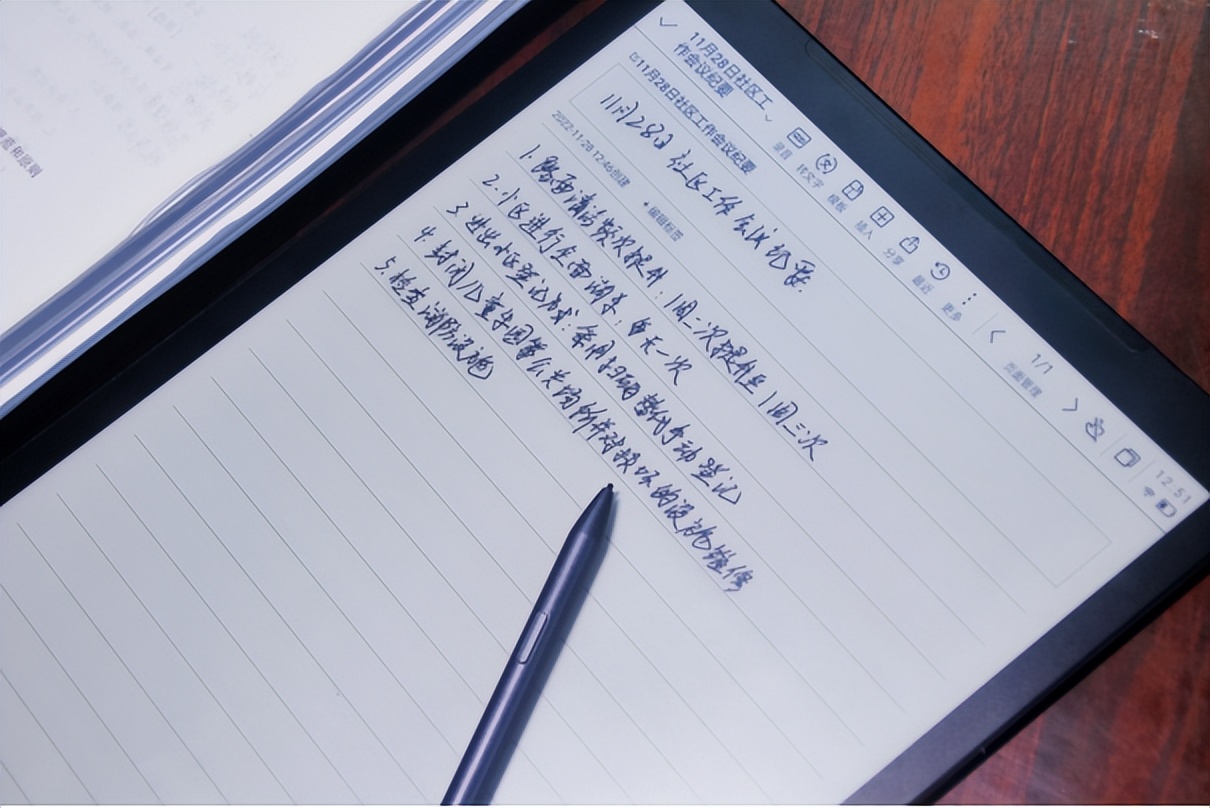 11月28日社区工
作会议纪要
录音 转文字 模板 插入 分享 最近 更多
1/1
页面管理
12:51
11月28日社区工作会议纪要
11月28日 社区工作会议纪要.
2022-11-28 12:46创建
+ 编辑标签
1. 路面清洁频次提升:1周二次提升至1周三次
2. 小区进行全面消杀 每天一次
3. 进出小区登记方式:采用扫码替代手动登记
4. 封闭儿童乐园等公共场所并对损坏的设施维修
5. 检查消防设施